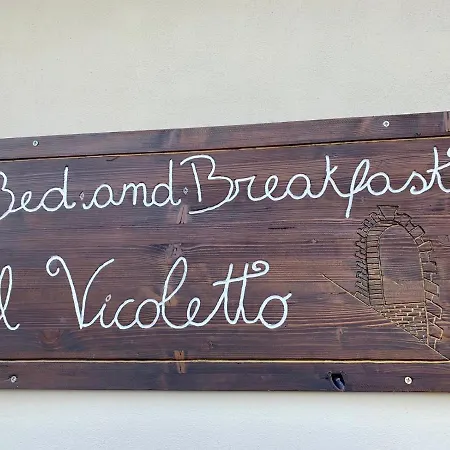 Bed and Breakfast
Il Vicoletto